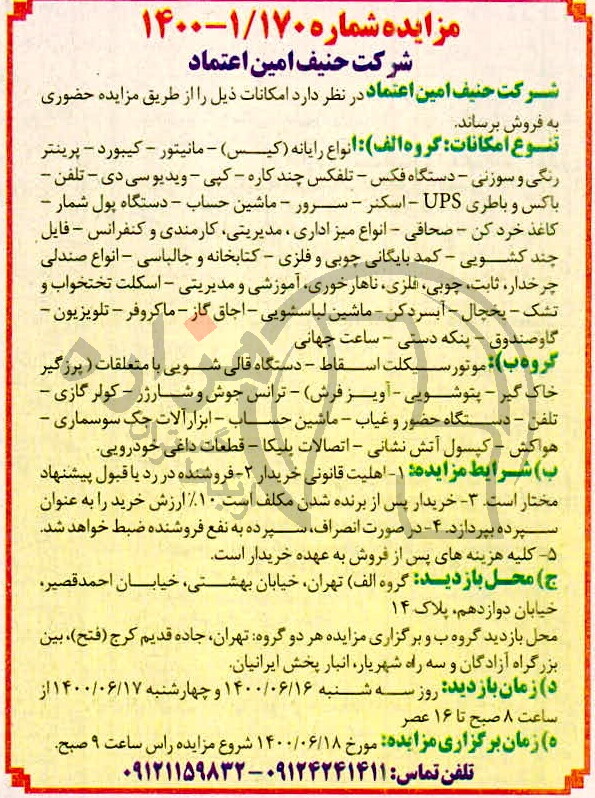 مزایده شماره ۱/۱۷۰-۱۴۰۰
شرکت حنیف امین اعتماد
شرکت حنیف امین اعتماد در نظر دارد امکانات ذیل را از طریق مزایده حضوری
به فروش برساند.
تنوع امکانات: گروه الف): انواع رایانه (کیس) – مانیتور – کیبورد – پرینتر
رنگی و سوزنی – دستگاه فکس – تلفکس چند کاره – کپی – ویدیو سی دی – تلفن –
باکس و باطری UPS – اسکنر – سرور – ماشین حساب – دستگاه پول شمار –
کاغذ خرد کن – صحافی – انواع میز اداری ، مدیریتی، کارمندی و کنفرانس – فایل
چند کشویی – کمد بایگانی چوبی و فلزی – کتابخانه و جالباسی – انواع صندلی
چرخدار، ثابت، چوبی، فلزی، ناهارخوری، آموزشی و مدیریتی – اسکلت تختخواب و
تشک – یخچال – آبسردکن – ماشین لباسشویی – اجاق گاز – ماکروفر – تلویزیون –
گاوصندوق – پنکه دستی – ساعت جهانی
گروه ب): موتورسیکلت اسقاط – دستگاه قالی شویی با متعلقات ( پرزگیر
خاک گیر – پتوشویی – آویز فرش) – ترانس جوش و شارژر – کولر گازی –
تلفن – دستگاه حضور و غیاب – ماشین حساب – ابزارآلات جک سوسماری –
هواکش – کپسول آتش نشانی – اتصالات پلیکا – قطعات داغی خودرویی.
ب) شرایط مزایده: ۱- اهلیت قانونی خریدار ۲-فروشنده در رد یا قبول پیشنهاد
مختار است. ۳- خریدار پس از برنده شدن مکلف است ۱۰٪ ارزش خرید را به عنوان
سپرده بپردازد. ۴- در صورت انصراف، سپرده به نفع فروشنده ضبط خواهد شد.
۵- کلیه هزینه های پس از فروش به عهده خریدار است.
ج) محل بازدید: گروه الف) تهران، خیابان بهشتی، خیابان احمدقصیر،
خیابان دوازدهم، پلاک ۱۴
محل بازدید گروه ب و برگزاری مزایده هر دو گروه: تهران، جاده قدیم کرج (فتح)، بین
بزرگراه آزادگان و سه راه شهریار، انبار پخش ایرانیان.
د) زمان بازدید: روز سه شنبه ۱۴۰۰/۰۶/۱۶ و چهارشنبه ۱۴۰۰/۰۶/۱۷ از
ساعت ۸ صبح تا ۱۶ عصر
ه) زمان برگزاری مزایده: مورخ ۱۴۰۰/۰۶/۱۸ شروع مزایده راس ساعت ۹ صبح.
تلفن تماس: ۰۹۱۲۴۲۴۱۴۱۱-۰۹۱۲۱۱۵۹۸۳۲